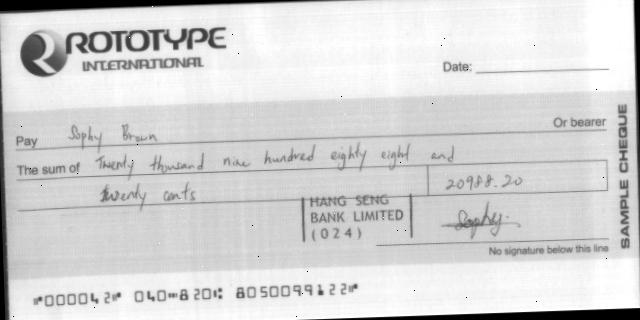 ROTOTYPE
INTERNATIONAL
Date:
Pay Sophy Brown Or bearer
The sum of Twenty thousand nine hundred eighty eight and
twenty cents 20988.20
HANG SENG
BANK LIMITED
(024)
Sophy.
No signature below this line
SAMPLE CHEQUE
⑈000042⑈ 040⑉820⑆ 805009912 2⑈